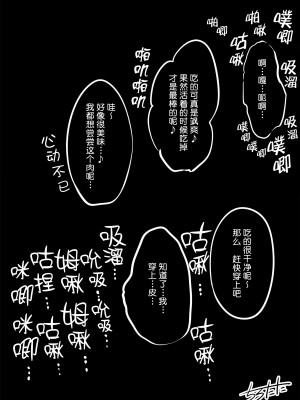 噗唧
啪唧
吸溜
啪唧
咕啾
噗唧
吸溜
噗唧
啊…嘎…呃啊…
吃的可真是飒爽♪
果然活着的时候吃掉
才是最棒的呢♪
啪叽
叽
哇～
好像很美味…♪
我都想尝尝这个肉呢…
心动不已
吃的很干净呢～
那么 赶快穿上吧
知道了…我…
穿上…皮…
吸溜…
咕啾…
吮吸…
姆啾…
咕捏…
咪唧…
咕啾…
姆啾…
吮吸…
咕啾…
咕啾…
咪唧…